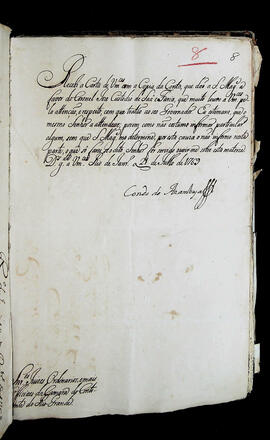 8 8
Recebi a Carta de Vm.ces com a Copia da Conta, que dão a S. Mag.e a
favor do Coronel Jozé Custodio de Sáa e Faria, que muito louvo a Vm.ces
pela attenção, e respeito, com que tratão ao seo Governador. Eu estimarei, que o
mesmo Senhor a attenda; porem como não costumo informar particular
algum, sem que S. Mag.e mo determine, por esta cauza o não informo nesta
parte, o que só farei, se o dito Senhor for servido ouvir-me sobre esta materia
D.s g.e a Vm.ces Rio de Janr.o de Julho de 1769
Conde de Azambuja
Juizes Ordinarios, e mais
Officiaes da Camara do Conti-
nente do Rio Grande